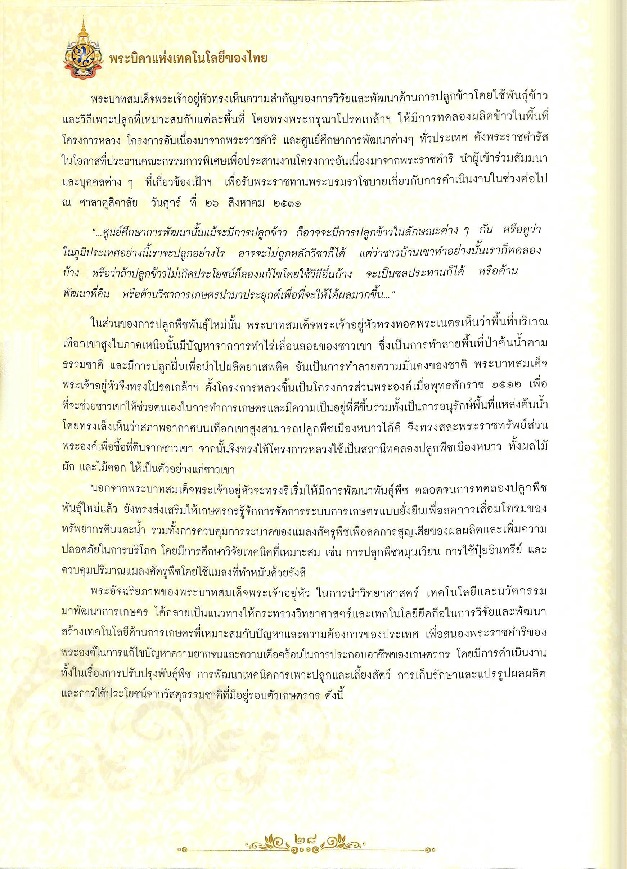 พระบิดาแห่งเทคโนโลยีของไทย
พระบาทสมเด็จพระเจ้าอยู่หัวทรงเห็นความสำคัญของการวิจัยและพัฒนาด้านการปลูกข้าวโดยใช้พันธุ์ข้าว
และวิธีเพาะปลูกที่เหมาะสมกับแต่ละพื้นที่ โดยทรงพระกรุณาโปรดเกล้าฯ ให้มีการทดลองผลิตข้าวในพื้นที่
โครงการหลวง โครงการอันเนื่องมาจากพระราชดำริ และศูนย์ศึกษาการพัฒนาต่างๆ ทั่วประเทศ ดังพระราชดำรัส
ในโอกาสที่ประธานคณะกรรมการพิเศษเพื่อประสานงานโครงการอันเนื่องมาจากพระราชดำริ นำผู้เข้าร่วมสัมมนา
และบุคคลต่าง ๆ ที่เกี่ยวข้องเฝ้าฯ เพื่อรับพระราชทานพระบรมราโชบายเกี่ยวกับการดำเนินงานในช่วงต่อไป
ณ ศาลาดุสิดาลัย วันศุกร์ ที่ ๒๖ สิงหาคม ๒๕๓๑
"...ศูนย์ศึกษาการพัฒนานั้นแม้จะมีการปลูกข้าว ก็อาจจะมีการปลูกข้าวในลักษณะต่าง ๆ กัน หรือดูว่า
ในภูมิประเทศอย่างนี้เราจะปลูกอย่างไร อาจจะไม่ถูกหลักวิชาก็ได้ แต่ว่าชาวบ้านเขาทำอย่างนั้นเราก็ทดลอง
บ้าง หรือว่าถ้าปลูกข้าวไม่เกิดประโยชน์ก็ลองแก้ไขโดยใช้วิธีอื่นบ้าง จะเป็นชลประทานก็ได้ หรือด้าน
พัฒนาที่ดิน หรือด้านวิชาการเกษตรนำมาประยุกต์เพื่อที่จะให้ได้ผลมากขึ้น..."
ในส่วนของการปลูกพืชพันธุ์ใหม่นั้น พระบาทสมเด็จพระเจ้าอยู่หัวทรงทอดพระเนตรเห็นว่าพื้นที่บริเวณ
เทือกเขาสูงในภาคเหนือนั้นมีปัญหาจากการทำไร่เลื่อนลอยของชาวเขา ซึ่งเป็นการทำลายพื้นที่ป่าต้นน้ำตาม
ธรรมชาติ และมีการปลูกฝิ่นเพื่อนำไปผลิตยาเสพติด อันเป็นการทำลายความมั่นคงของชาติ พระบาทสมเด็จ
พระเจ้าอยู่หัวจึงทรงโปรดเกล้าฯ ตั้งโครงการหลวงขึ้นเป็นโครงการส่วนพระองค์เมื่อพุทธศักราช ๒๕๑๒ เพื่อ
ที่จะช่วยชาวเขาให้ช่วยตนเองในการทำการเกษตรและมีความเป็นอยู่ที่ดีขึ้นรวมทั้งเป็นการอนุรักษ์พื้นที่แหล่งต้นน้ำ
โดยทรงเล็งเห็นว่าสภาพอากาศบนเทือกเขาสูงสามารถปลูกพืชเมืองหนาวได้ดี จึงทรงสละพระราชทรัพย์ส่วน
พระองค์เพื่อซื้อที่ดินจากชาวเขา จากนั้นจึงทรงให้โครงการหลวงใช้เป็นสถานีทดลองปลูกพืชเมืองหนาว ทั้งผลไม้
ผัก และไม้ดอก ให้เป็นตัวอย่างแก่ชาวเขา
นอกจากพระบาทสมเด็จพระเจ้าอยู่หัวจะทรงริเริ่มให้มีการพัฒนาพันธุ์พืช ตลอดจนการทดลองปลูกพืช
พันธุ์ใหม่แล้ว ยังทรงส่งเสริมให้เกษตรกรรู้จักการจัดการระบบการเกษตรแบบยั่งยืนเพื่อลดการเสื่อมโทรมของ
ทรัพยากรดินและน้ำ รวมทั้งการควบคุมการระบาดของแมลงศัตรูพืชเพื่อลดการสูญเสียของผลผลิตและเพิ่มความ
ปลอดภัยในการบริโภค โดยมีการศึกษาวิจัยเทคนิคที่เหมาะสม เช่น การปลูกพืชหมุนเวียน การใช้ปุ๋ยอินทรีย์ และ
ควบคุมปริมาณแมลงศัตรูพืชโดยใช้แมลงที่ทำหมันด้วยรังสี
พระอัจฉริยภาพของพระบาทสมเด็จพระเจ้าอยู่หัว ในการนำวิทยาศาสตร์ เทคโนโลยีและนวัตกรรม
มาพัฒนาการเกษตร ได้กลายเป็นแนวทางให้กระทรวงวิทยาศาสตร์และเทคโนโลยียึดถือในการวิจัยและพัฒนา
สร้างเทคโนโลยีด้านการเกษตรที่เหมาะสมกับปัญหาและความต้องการของประเทศ เพื่อสนองพระราชดำริของ
พระองค์ในการแก้ไขปัญหาความยากจนและความเดือดร้อนในการประกอบอาชีพของเกษตรกร โดยมีการดำเนินงาน
ทั้งในเรื่องการปรับปรุงพันธุ์พืช การพัฒนาเทคนิคการเพาะปลูกและเลี้ยงสัตว์ การเก็บรักษาและแปรรูปผลผลิต
และการใช้ประโยชน์จากวัสดุธรรมชาติที่มีอยู่รอบตัวเกษตรกร ดังนี้
๒๘